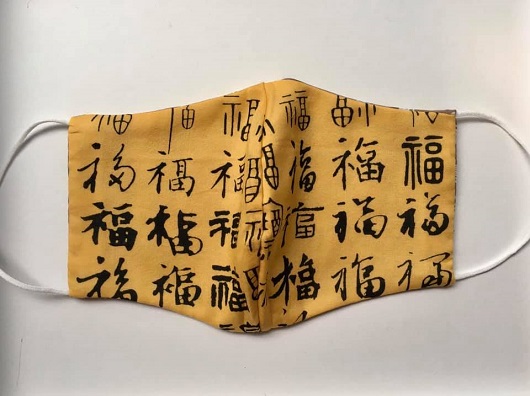 福 福
福 福 福 福 福 福
福 福 福 福 福 福
福 福 福 福 福 福